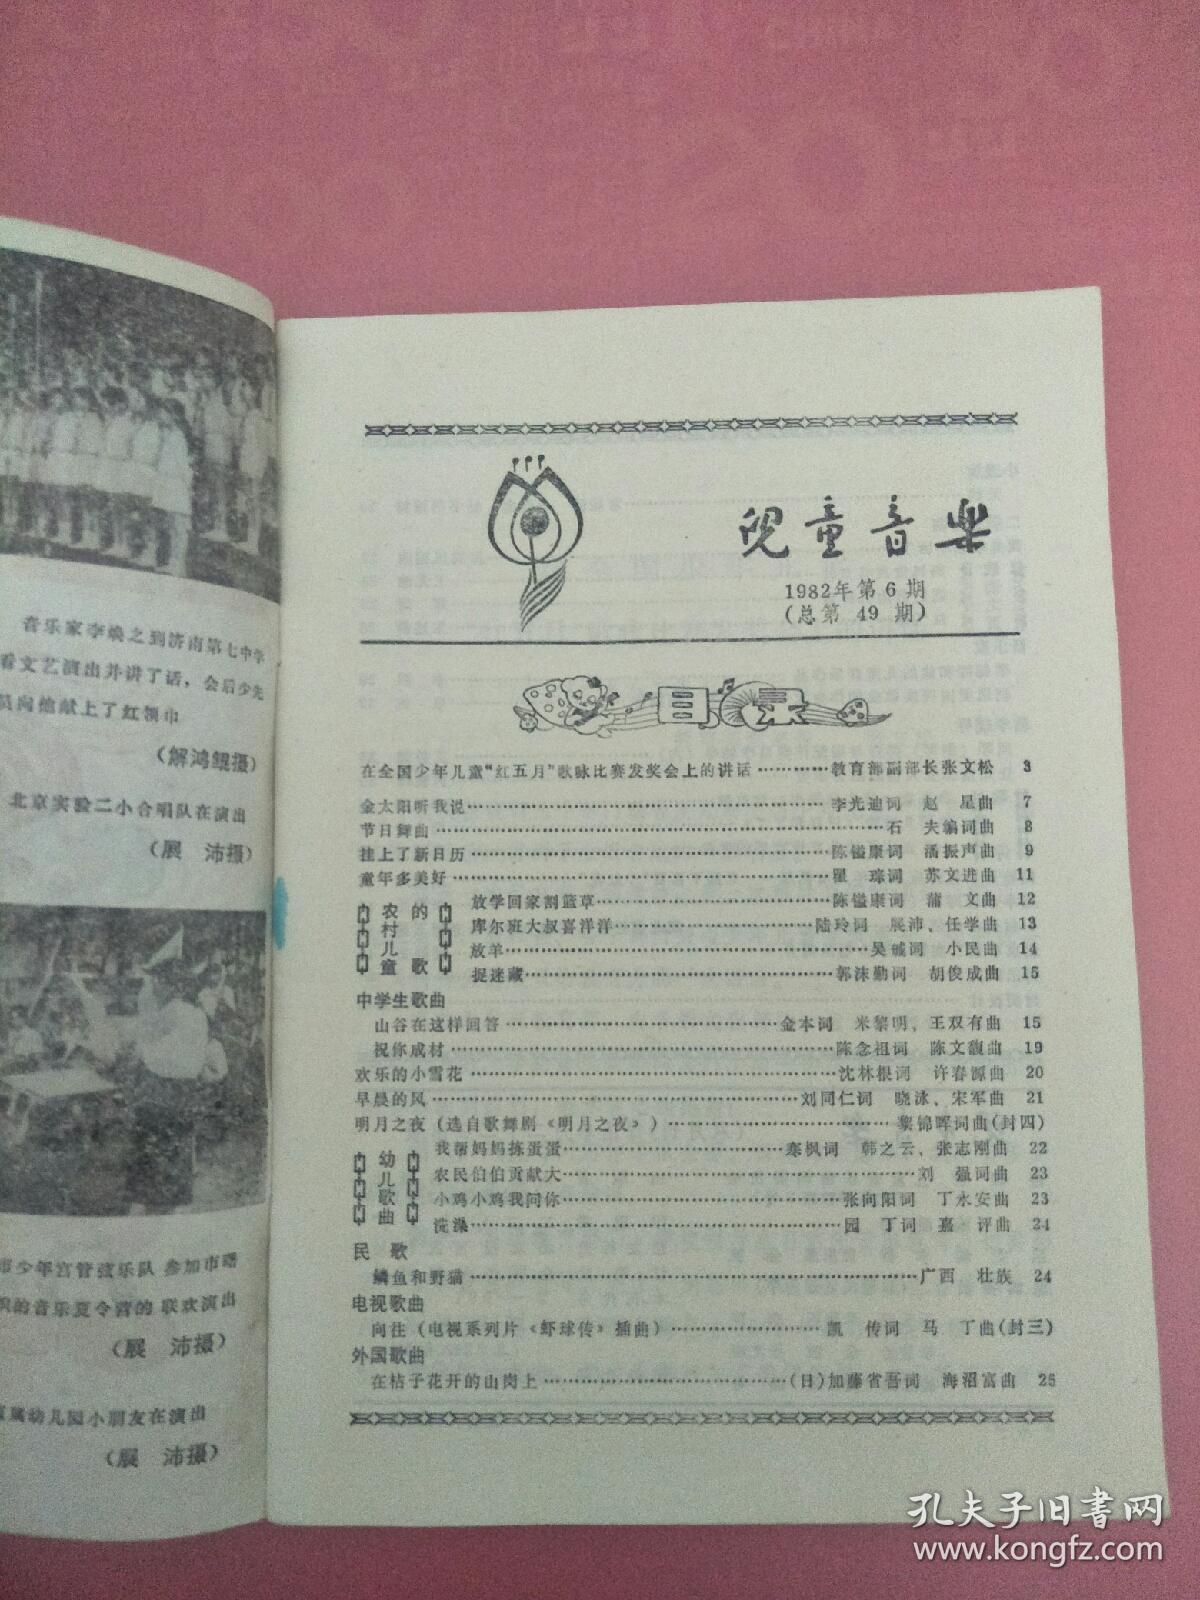 音乐家李焕之到济南第七中学
看文艺演出并讲了话，会后少先
员向他献上了红领巾
（解鸿鲲摄）
北京实验二小合唱队在演出
（展　沛摄）
市少年宫管弦乐队 参加市
的音乐夏令营的 联欢演出
（展　沛摄）
属幼儿园小朋友在演出
（展　沛摄）
儿童音乐
1982年第6期
（总第 49 期）
目录
在全国少年儿童“红五月”歌咏比赛发奖会上的讲话…………教育部副部长张文松　3
金太阳听我说……李光迪词　赵　星曲　7
节日舞曲……石　夫编词曲　8
挂上了新日历……陈镒康词　潘振声曲　9
童年多美好……瞿　琮词　苏文进曲　11
农村儿童的歌
放学回家割篮草……陈镒康词　蒲　文曲　12
库尔班大叔喜洋洋……陆玲词　展沛、任学曲　13
放羊……吴城词　小民曲　14
捉迷藏……郭沫勤词　胡俊成曲　15
中学生歌曲
山谷在这样回答……金本词　米黎明、王双有曲　15
祝你成材……陈念祖词　陈文馥曲　19
欢乐的小雪花……沈林根词　许春源曲　20
早晨的风……刘同仁词　晓泳、宋军曲　21
明月之夜（选自歌舞剧《明月之夜》）……黎锦晖词曲(封四)
幼儿歌曲
我帮妈妈拣蛋蛋……寒枫词　韩之云、张志刚曲　22
农民伯伯贡献大……刘　强词曲　23
小鸡小鸡我问你……张向阳词　丁永安曲　23
洗澡……园　丁词　嘉　评曲　24
民　歌
鳞鱼和野猫……广西　壮族　24
电视歌曲
向往（电视系列片《虾球传》插曲）……凯　传词　马　丁曲(封三)
外国歌曲
在桔子花开的山岗上……(日)加藤省吾词　海沼富曲　25
孔夫子旧书网
www.kongfz.com